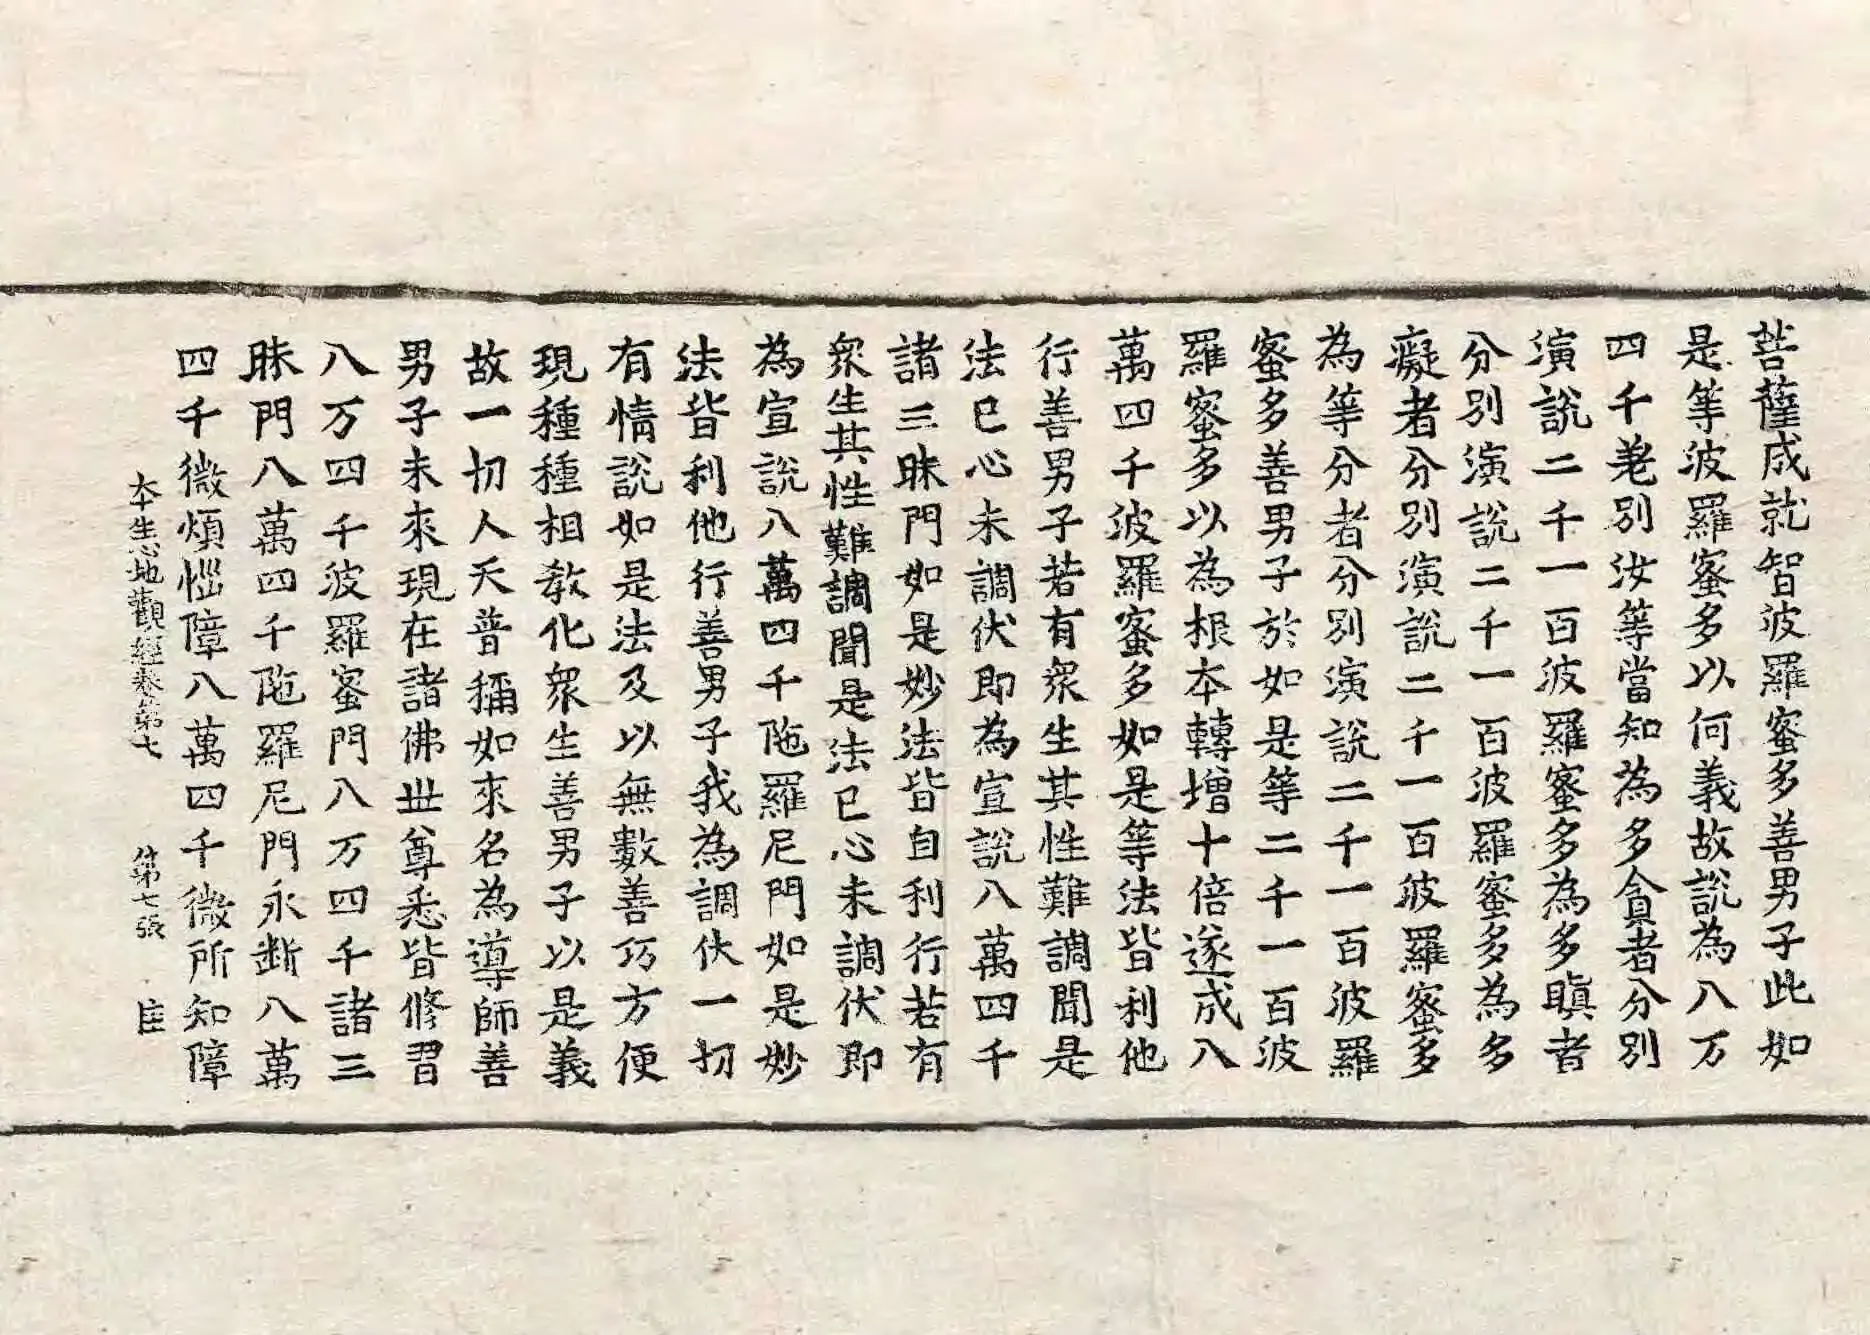 菩薩成就智波羅蜜多善男子此如
是等波羅蜜多以何義故說為八万
四千差別汝等當知為多貪者分別
演說二千一百波羅蜜多為多瞋者
分別演說二千一百波羅蜜多為多
癡者分別演說二千一百波羅蜜多
為等分者分別演說二千一百波羅
蜜多善男子於如是等二千一百波
羅蜜多以為根本轉增十倍遂成八
萬四千波羅蜜多如是等法皆利他
行善男子若有衆生其性難調聞是
法已心未調伏即為宣說八萬四千
諸三昧門如是妙法皆自利行若有
衆生其性難調聞是法已心未調伏即
為宣說八萬四千陁羅尼門如是妙
法皆利他行善男子我為調伏一切
有情說如是法及以無數善巧方便
現種種相教化衆生善男子以是義
故一切人天普稱如來名為導師善
男子未來現在諸佛世尊悉皆修習
八万四千波羅蜜門八万四千諸三
昧門八萬四千陁羅尼門永斷八萬
四千微煩惱障八萬四千微所知障
本生心地觀經卷第七 第七張